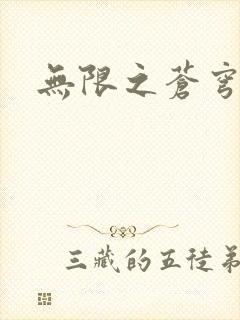 無限之蒼穹
三藏的五徒弟